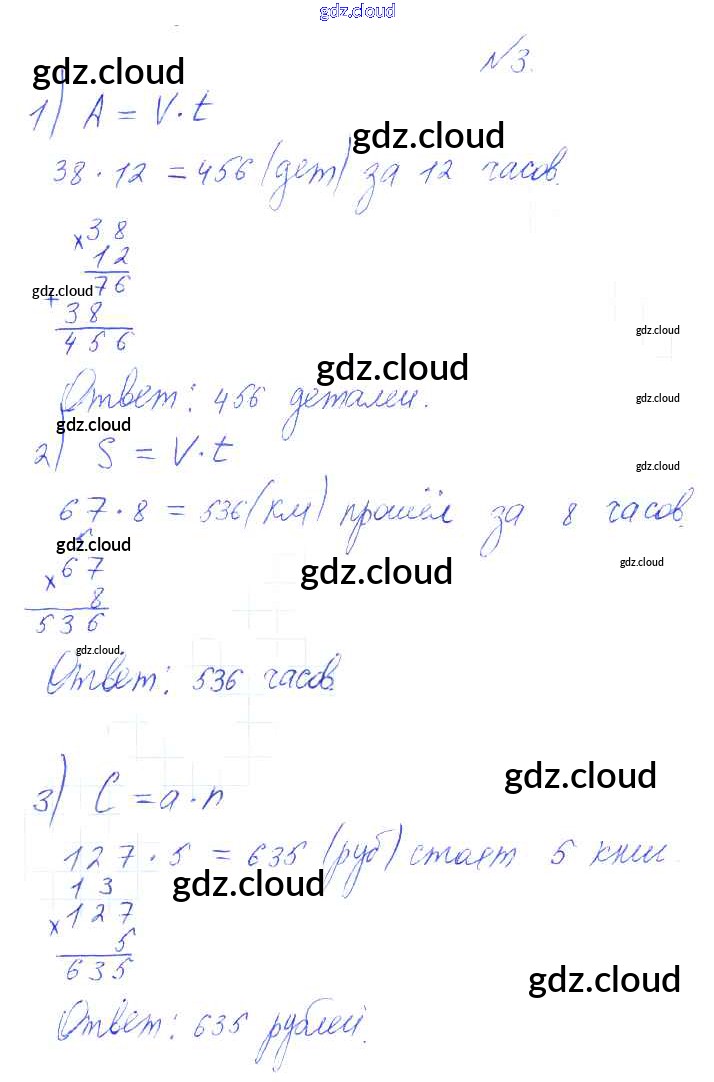 gdz.cloud
gdz.cloud
№3.
1) A = V·t
gdz.cloud
38·12 = 456 (дет) за 12 часов.
×38
12
76
gdz.cloud
+
38
gdz.cloud
456
gdz.cloud
Ответ: 456 деталей.
gdz.cloud
gdz.cloud
2) S = V·t
gdz.cloud
67·8 = 536 (км) прошёл за 8 часов.
5
gdz.cloud
×67
gdz.cloud
gdz.cloud
8
536
gdz.cloud
Ответ: 536 часов.
gdz.cloud
3) C = a·n
127·5 = 635 (руб) стоят 5 книг
13
gdz.cloud
×127
5
635
gdz.cloud
Ответ: 635 рублей.